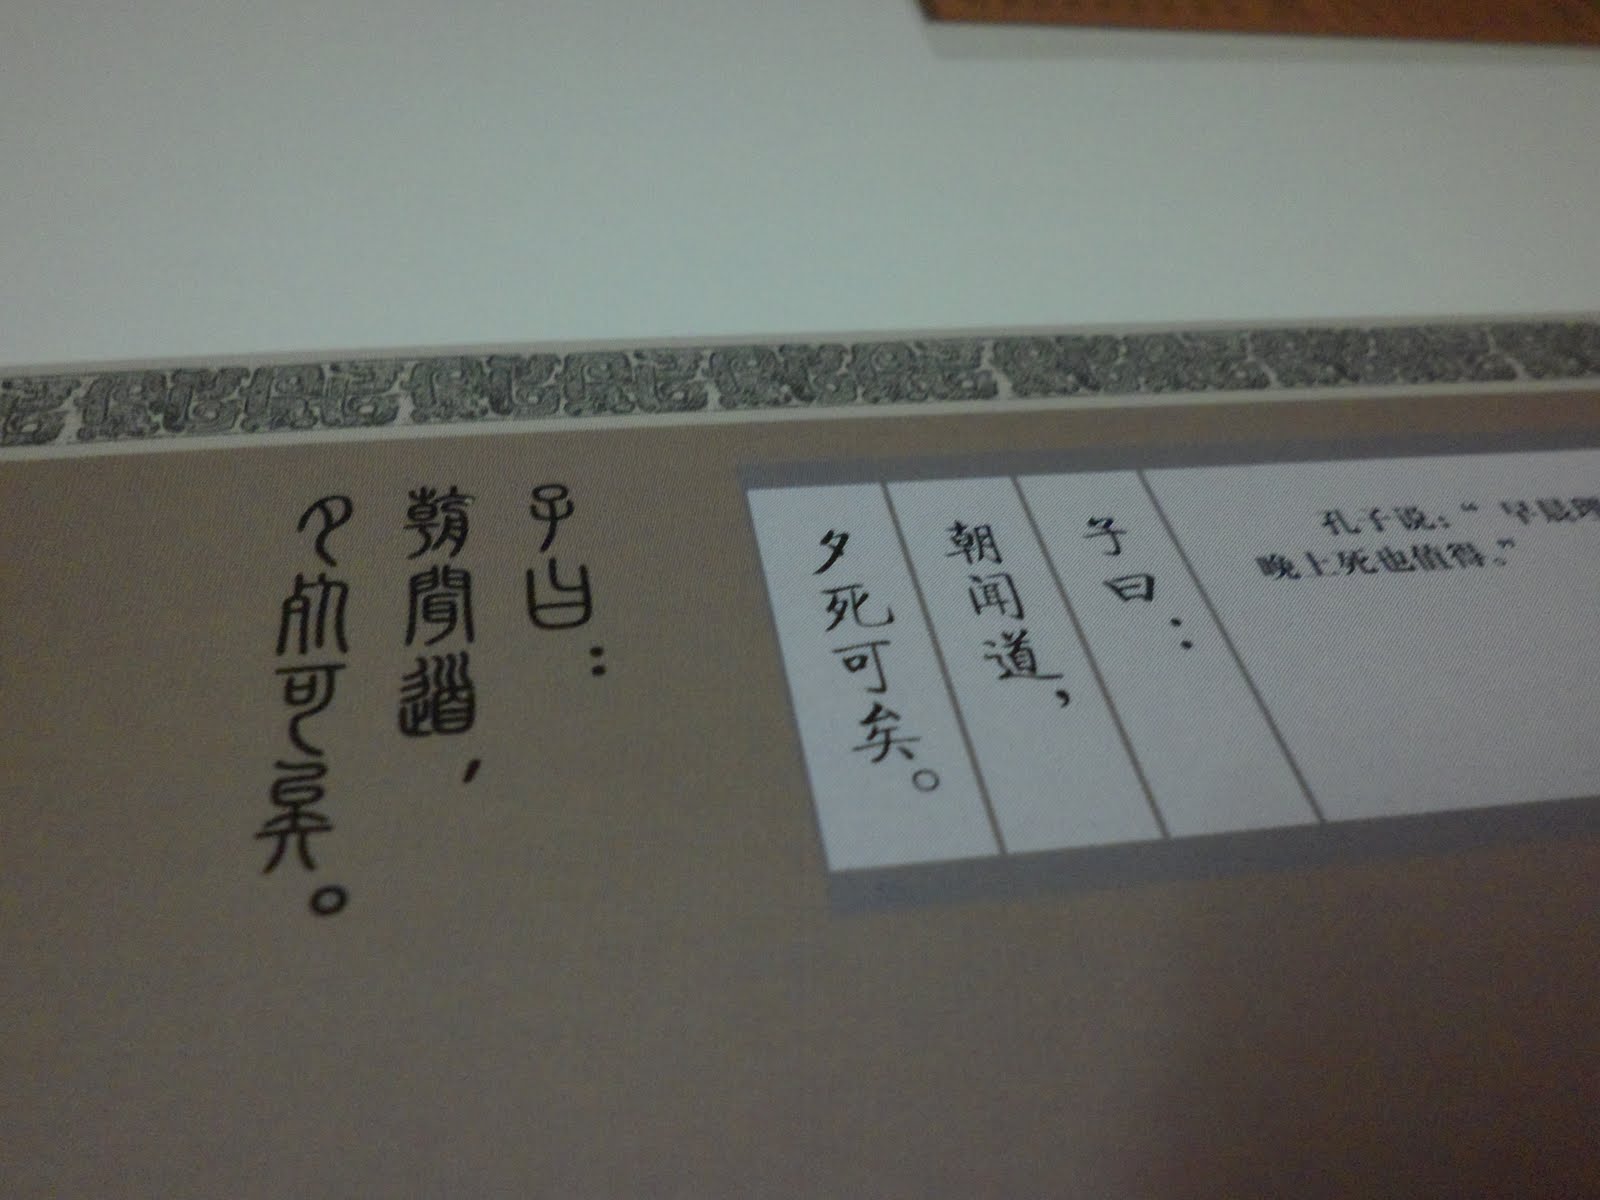 孔子说：“早晨理
晚上死也值得。”
子曰：
朝闻道，
夕死可矣。
子曰：
朝聞道，
夕死可矣。